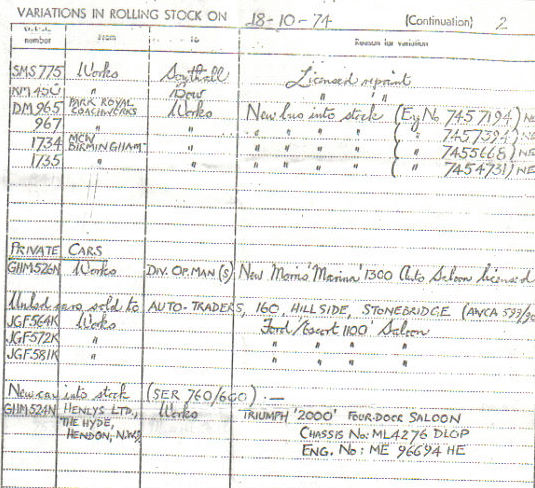 VARIATIONS IN ROLLING STOCK ON 18-10-74 (Continuation) 2
Vehicle number From To Reason for variation
SMS 775 Works Southall Licensed repaint
RM 450 " Bow " "
DM 965 PARK ROYAL COACHWORKS Works New bus into stock (Eng No 7457194) NE
967 " " " " " " ( " 7457394) NE
1734 MCW BIRMINGHAM " " " " " ( " 7455668) NE
1735 " " " " " " ( " 7454731) NE
PRIVATE CARS
GHM 526N Works DIV. OP. MAN (S) New Morris 'Marina' 1300 Auto Saloon licensed
sold to AUTO-TRADERS, 160, HILLSIDE, STONEBRIDGE (AWCA
JGF 564K Works Ford 'Escort 1100' Saloon
JGF 572K " " " "
JGF 581K " " " "
New car into stock (SER 760/600) :—
GHM 524N HENLYS LTD., Works TRIUMPH '2000' FOUR-DOOR SALOON
THE HYDE, CHASSIS No: ML4276 DLOP
HENDON, N.W.9 ENG. No: ME 96694 HE